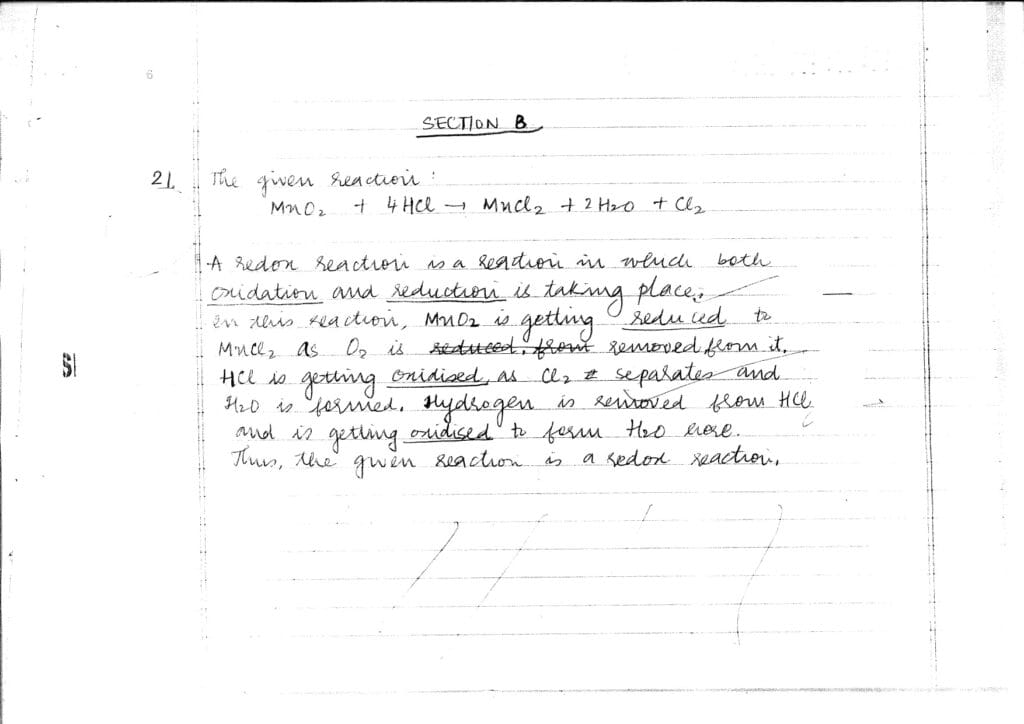 6
SECTION B
21. The given reaction :
MnO2 + 4HCl → MnCl2 + 2H2O + Cl2
A redox reaction is a reaction in which both
oxidation and reduction is taking place.
In this reaction, MnO2 is getting reduced to
MnCl2 as O2 is reduced, from removed from it.
HCl is getting oxidised, as Cl2 separates and
H2O is formed. Hydrogen is removed from HCl
and is getting oxidised to form H2O here.
Thus, the given reaction is a redox reaction.